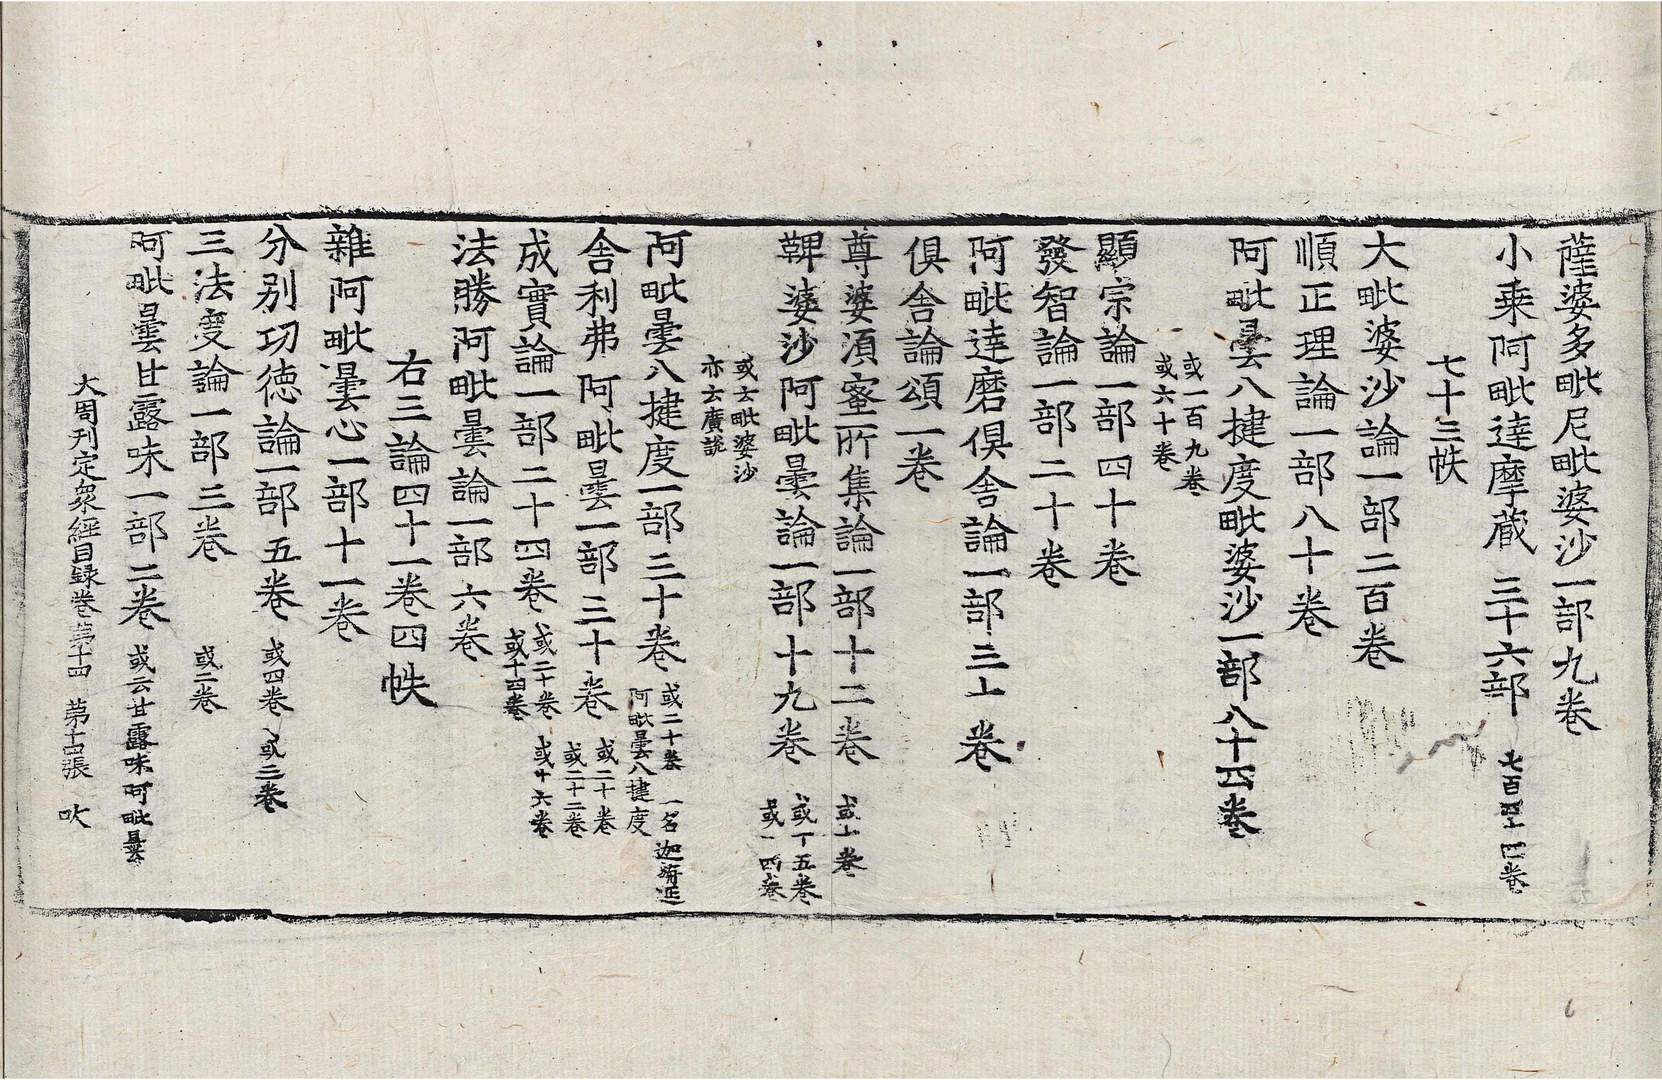 薩婆多毗尼毗婆沙一部九卷
小乘阿毗達摩藏 三十六部 七百四十四卷
七十三帙
大毗婆沙論一部二百卷
順正理論一部八十卷
阿毗曇八揵度毗婆沙一部八十四卷
或一百九卷
或六十卷
顯宗論一部四十卷
發智論一部二十卷
阿毗達磨俱舍論一部三十卷
俱舍論頌一卷
尊婆須蜜所集論一部十二卷 或十卷
鞞婆沙阿毗曇論一部十九卷 或十五卷
或十四卷
或云毗婆沙
亦云廣說
阿毗曇八揵度一部三十卷 或二十卷 一名迦旃延
阿毗曇八揵度
舍利弗阿毗曇一部三十卷 或二十卷
或二十二卷
成實論一部二十四卷 或二十卷
或十四卷 或十六卷
法勝阿毗曇論一部六卷
右三論四十一卷四帙
雜阿毗曇心一部十一卷
分別功德論一部五卷 或四卷 或三卷
三法度論一部三卷 或二卷
阿毗曇甘露味一部二卷 或云甘露味阿毗曇
大周刊定衆經目録卷第十四 第十四張 吹